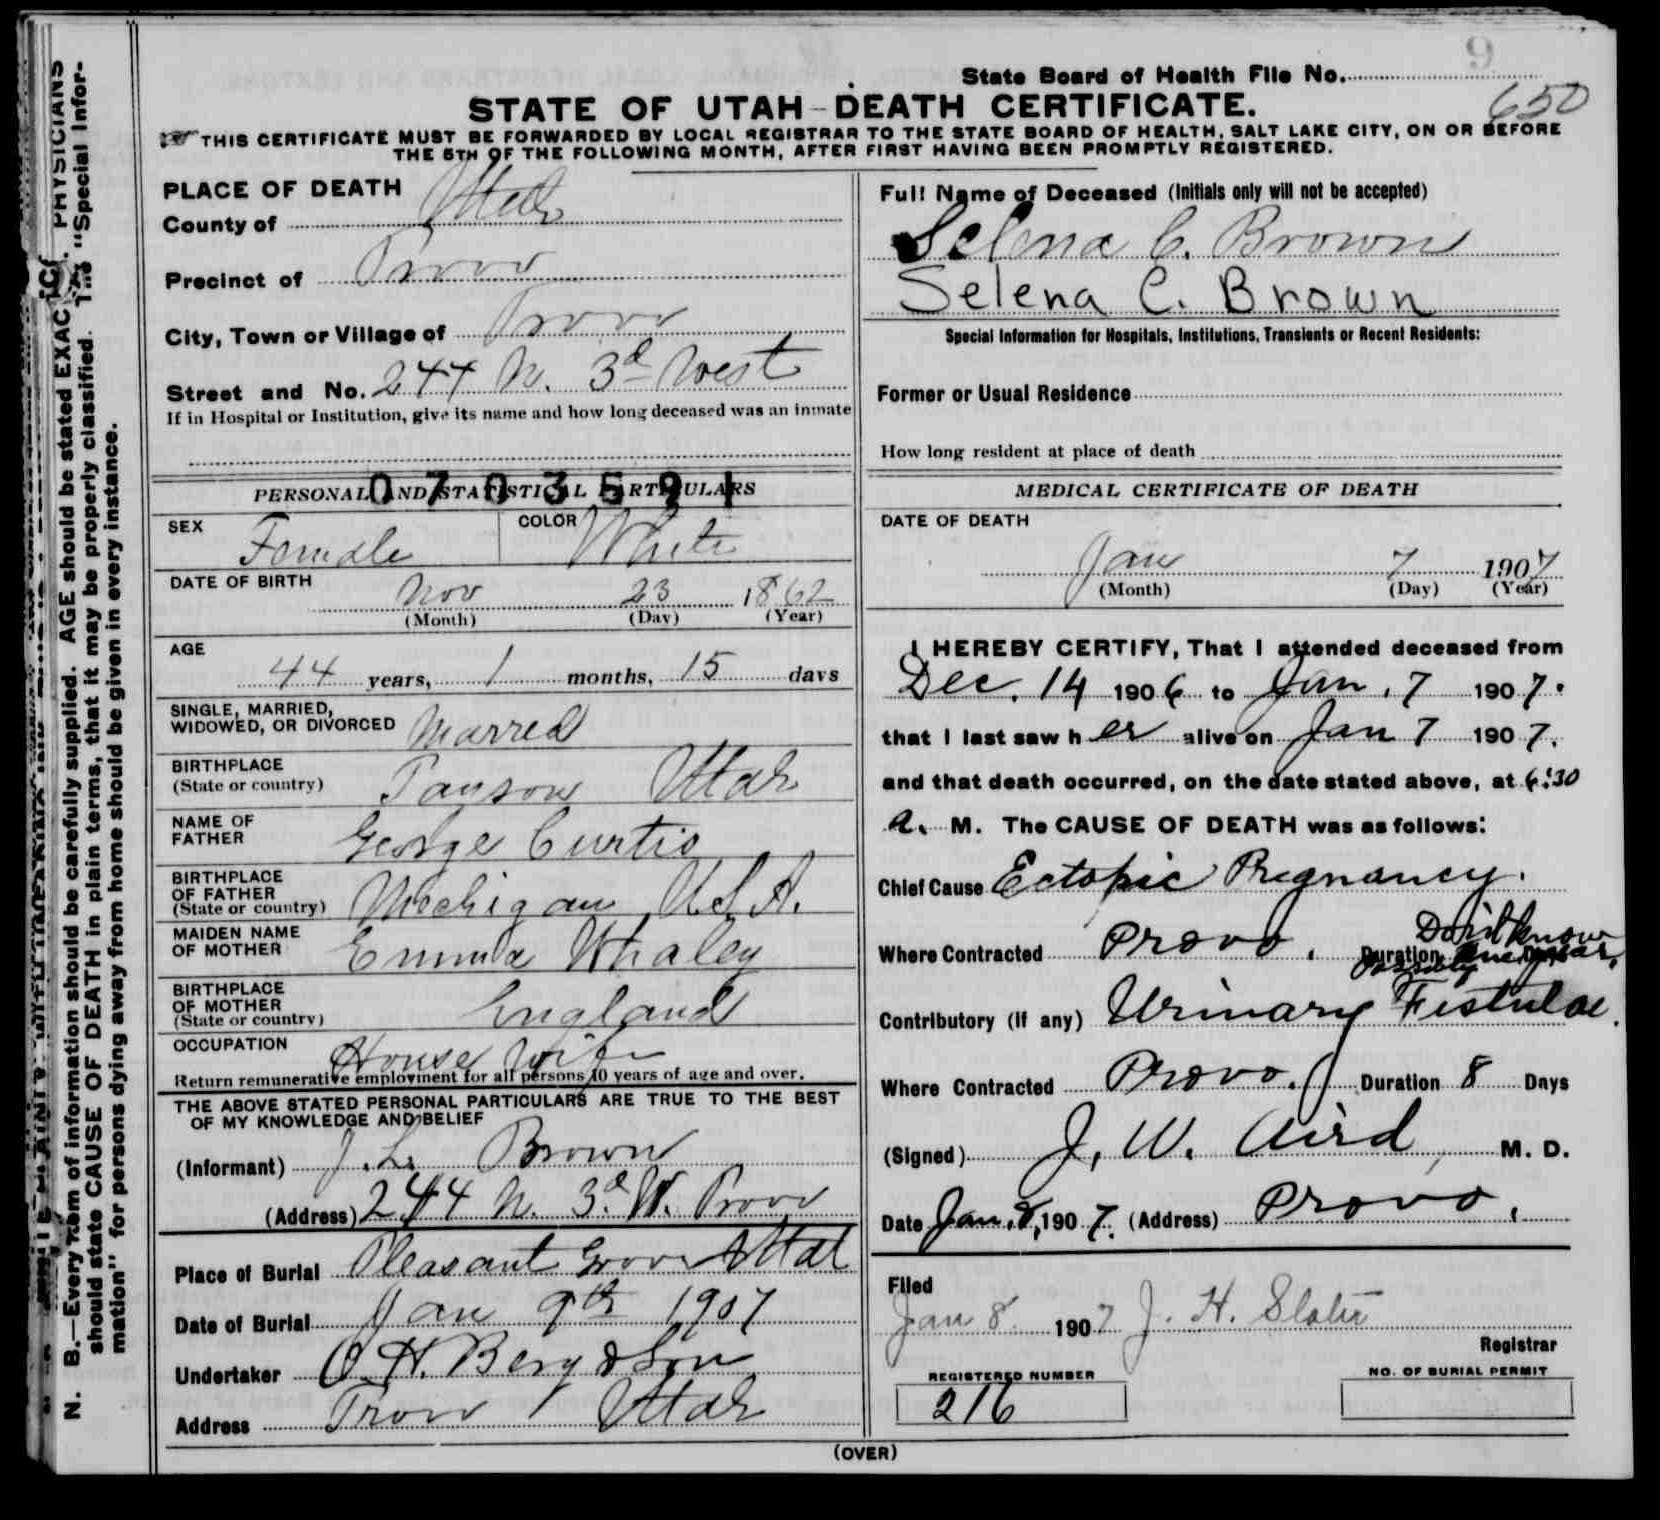 9
State Board of Health File No.
650
STATE OF UTAH - DEATH CERTIFICATE.
THIS CERTIFICATE MUST BE FORWARDED BY LOCAL REGISTRAR TO THE STATE BOARD OF HEALTH, SALT LAKE CITY, ON OR BEFORE
THE 5TH OF THE FOLLOWING MONTH, AFTER FIRST HAVING BEEN PROMPTLY REGISTERED.
PLACE OF DEATH
County of Utah
Precinct of Provo
City, Town or Village of Provo
Street and No. 244 N. 3d West
If in Hospital or Institution, give its name and how long deceased was an inmate
0703591
PERSONAL AND STATISTICAL PARTICULARS
SEX Female COLOR White
DATE OF BIRTH
Nov 23 1862
(Month) (Day) (Year)
AGE
44 years, 1 months, 15 days
SINGLE, MARRIED,
WIDOWED, OR DIVORCED Marred
BIRTHPLACE
(State or country) Payson Utah
NAME OF
FATHER George Curtis
BIRTHPLACE
OF FATHER
(State or country) Mechigan U.S.A.
MAIDEN NAME
OF MOTHER Emma Whaley
BIRTHPLACE
OF MOTHER
(State or country) England
OCCUPATION House wife
Return remunerative employment for all persons 10 years of age and over.
THE ABOVE STATED PERSONAL PARTICULARS ARE TRUE TO THE BEST
OF MY KNOWLEDGE AND BELIEF
(Informant) J. L. Brown
(Address) 244 N. 3d W. Provo
Place of Burial Pleasant Grove Utah
Date of Burial Jan 9th 1907
Undertaker O. H. Berg & Son
Address Provo Utah
Full Name of Deceased (Initials only will not be accepted)
Selena C. Brown
Selena C. Brown
Special Information for Hospitals, Institutions, Transients or Recent Residents:
Former or Usual Residence
How long resident at place of death
MEDICAL CERTIFICATE OF DEATH
DATE OF DEATH
Jan 7 1907
(Month) (Day) (Year)
I HEREBY CERTIFY, That I attended deceased from
Dec. 14 1906 to Jan. 7 1907.
that I last saw her alive on Jan 7 1907.
and that death occurred, on the date stated above, at 6:30
a. M. The CAUSE OF DEATH was as follows:
Chief Cause Ectopic Pregnancy.
Don't know
Where Contracted Provo. Duration possibly one year.
Contributory (if any) Urinary Fistulae.
Where Contracted Provo. Duration 8 Days
(Signed) J. W. Aird, M. D.
Date Jan. 8, 1907. (Address) Provo.
Filed
Jan 8 1907 J. H. Slater
Registrar
REGISTERED NUMBER
216
NO. OF BURIAL PERMIT
(OVER)
N. B.—Every item of information should be carefully supplied. AGE should be stated EXAC PHYSICIANS
should state CAUSE OF DEATH in plain terms, that it may be properly classified. The "Special Infor-
mation" for persons dying away from home should be given in every instance.